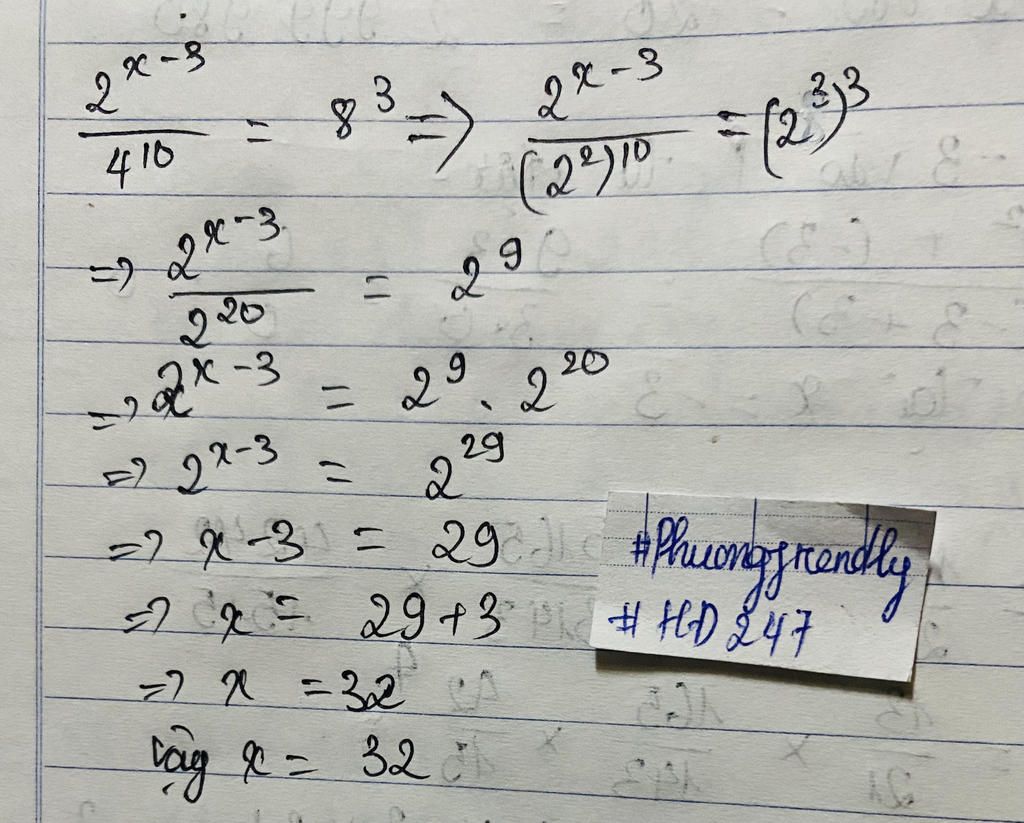 2^(x-3)/4^10 = 8^3 => 2^(x-3)/(2^2)^10 = (2^3)^3
=> 2^(x-3)/2^20 = 2^9
=> 2^(x-3) = 2^9 . 2^20
=> 2^(x-3) = 2^29
=> x-3 = 29
=> x = 29+3
=> x = 32
Vậy x = 32
#Phuongfriendly
# HD 247